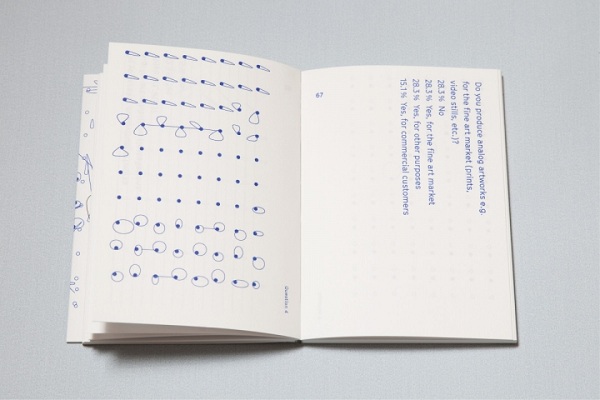 67
Do you produce analog artworks e.g.
for the fine art market (prints,
video stills, etc.)?
28.3 % No
28.3 % Yes, for the fine art market
28.3 % Yes, for other purposes
15.1 % Yes, for commercial customers